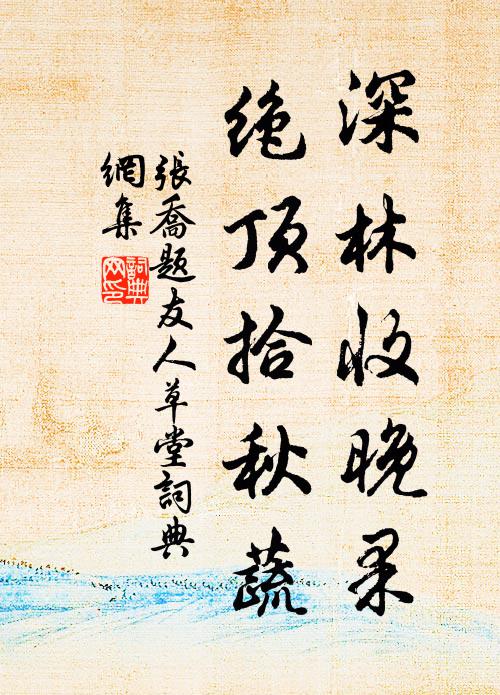 深林收晚果
绝顶拾秋蔬
張喬题友人草堂詞典
網集
詞典
网印